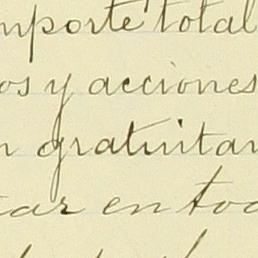 mporte total
os y acciones
n gratuitan
car en toc